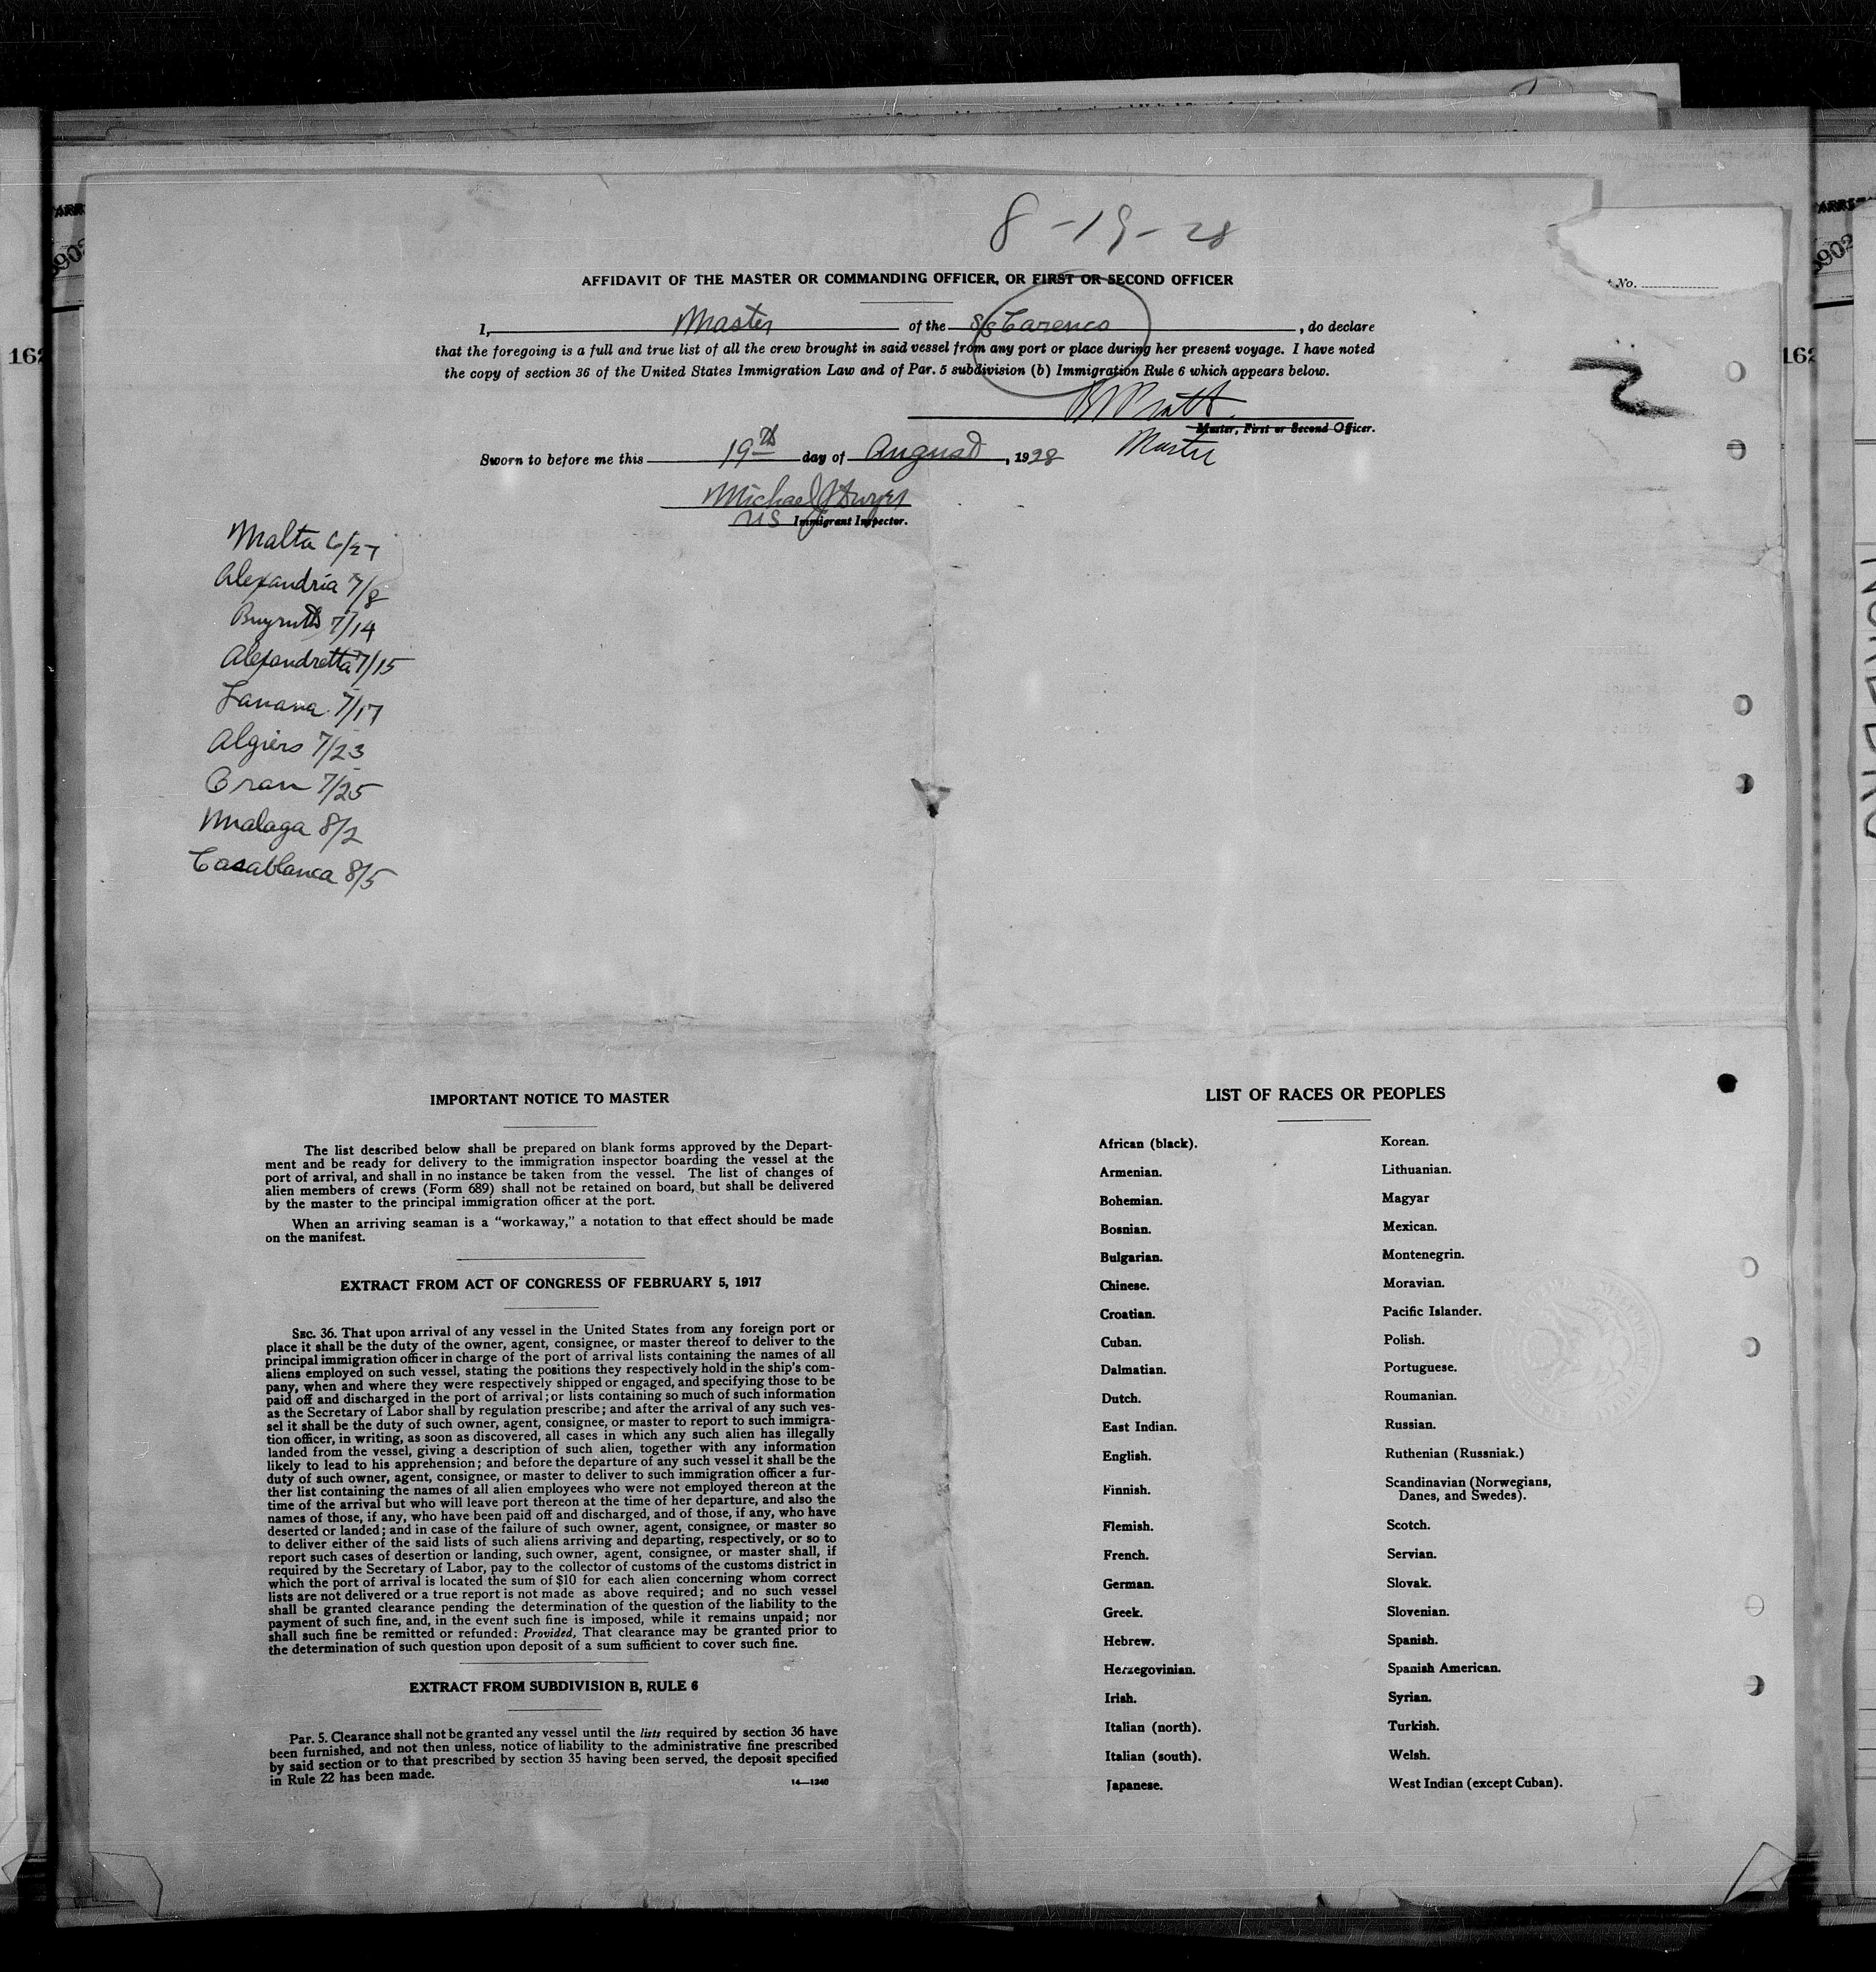 8-19-28
AFFIDAVIT OF THE MASTER OR COMMANDING OFFICER, OR FIRST OR SECOND OFFICER
No.
I, Master of the S/S Carenco, do declare
that the foregoing is a full and true list of all the crew brought in said vessel from any port or place during her present voyage. I have noted
the copy of section 36 of the United States Immigration Law and of Par. 5 subdivision (b) Immigration Rule 6 which appears below.
Pratt
Master, First or Second Officer.
Master
Sworn to before me this 19th day of August, 1928
Michael J Dwyer
US Immigrant Inspector.
Malta 6/27
Alexandria 7/8
7/14
Alexandretta 7/15
7/17
Algiers 7/23
Oran 7/25
Malaga 8/2
Casablanca 8/5
IMPORTANT NOTICE TO MASTER
The list described below shall be prepared on blank forms approved by the Depart-
ment and be ready for delivery to the immigration inspector boarding the vessel at the
port of arrival, and shall in no instance be taken from the vessel. The list of changes of
alien members of crews (Form 689) shall not be retained on board, but shall be delivered
by the master to the principal immigration officer at the port.
When an arriving seaman is a “workaway,” a notation to that effect should be made
on the manifest.
EXTRACT FROM ACT OF CONGRESS OF FEBRUARY 5, 1917
SEC. 36. That upon arrival of any vessel in the United States from any foreign port or
place it shall be the duty of the owner, agent, consignee, or master thereof to deliver to the
principal immigration officer in charge of the port of arrival lists containing the names of all
aliens employed on such vessel, stating the positions they respectively hold in the ship's com-
pany, when and where they were respectively shipped or engaged, and specifying those to be
paid off and discharged in the port of arrival; or lists containing so much of such information
as the Secretary of Labor shall by regulation prescribe; and after the arrival of any such ves-
sel it shall be the duty of such owner, agent, consignee, or master to report to such immigra-
tion officer, in writing, as soon as discovered, all cases in which any such alien has illegally
landed from the vessel, giving a description of such alien, together with any information
likely to lead to his apprehension; and before the departure of any such vessel it shall be the
duty of such owner, agent, consignee, or master to deliver to such immigration officer a fur-
ther list containing the names of all alien employees who were not employed thereon at the
time of the arrival but who will leave port thereon at the time of her departure, and also the
names of those, if any, who have been paid off and discharged, and of those, if any, who have
deserted or landed; and in case of the failure of such owner, agent, consignee, or master so
to deliver either of the said lists of such aliens arriving and departing, respectively, or so to
report such cases of desertion or landing, such owner, agent, consignee, or master shall, if
required by the Secretary of Labor, pay to the collector of customs of the customs district in
which the port of arrival is located the sum of $10 for each alien concerning whom correct
lists are not delivered or a true report is not made as above required; and no such vessel
shall be granted clearance pending the determination of the question of the liability to the
payment of such fine, and, in the event such fine is imposed, while it remains unpaid; nor
shall such fine be remitted or refunded: Provided, That clearance may be granted prior to
the determination of such question upon deposit of a sum sufficient to cover such fine.
EXTRACT FROM SUBDIVISION B, RULE 6
Par. 5. Clearance shall not be granted any vessel until the lists required by section 36 have
been furnished, and not then unless, notice of liability to the administrative fine prescribed
by said section or to that prescribed by section 35 having been served, the deposit specified
in Rule 22 has been made.
14—1240
LIST OF RACES OR PEOPLES
African (black).
Armenian.
Bohemian.
Bosnian.
Bulgarian.
Chinese.
Croatian.
Cuban.
Dalmatian.
Dutch.
East Indian.
English.
Finnish.
Flemish.
French.
German.
Greek.
Hebrew.
Herzegovinian.
Irish.
Italian (north).
Italian (south).
Japanese.
Korean.
Lithuanian.
Magyar
Mexican.
Montenegrin.
Moravian.
Pacific Islander.
Polish.
Portuguese.
Roumanian.
Russian.
Ruthenian (Russniak.)
Scandinavian (Norwegians,
Danes, and Swedes).
Scotch.
Servian.
Slovak.
Slovenian.
Spanish.
Spanish American.
Syrian.
Turkish.
Welsh.
West Indian (except Cuban).